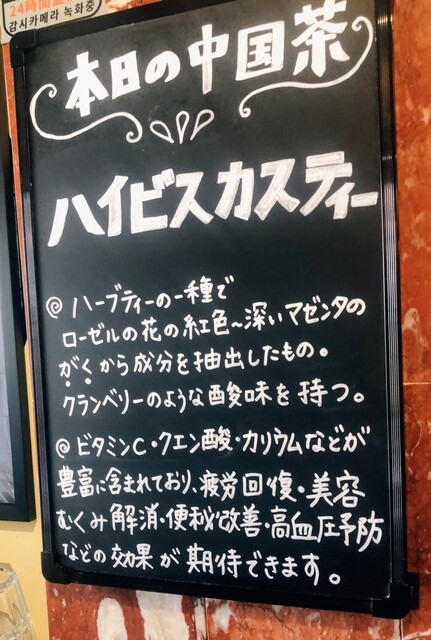 24時間
감시카메라 녹화중
本日の中国茶
ハイビスカスティー
◎ハーブティーの一種で
ローゼルの花の紅色~深いマゼンタの
がくから成分を抽出したもの。
クランベリーのような酸味を持つ。
◎ビタミンC・クエン酸・カリウムなどが
豊富に含まれており、疲労回復・美容
むくみ解消・便秘改善・高血圧予防
などの効果が期待できます。